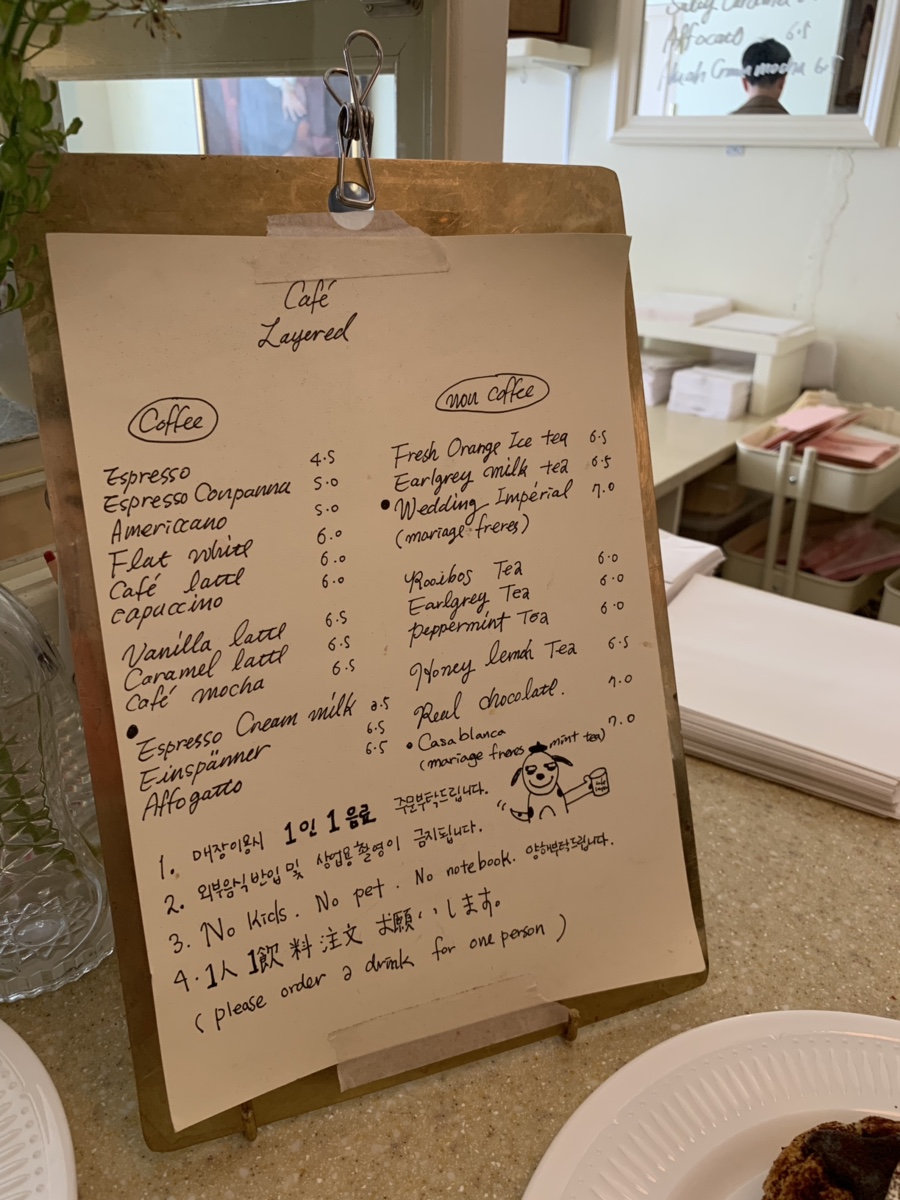 Affocato 6.5
mocha
Café
Layered
Coffee
Espresso 4.5
Espresso Conpanna 5.0
Americcano 5.0
Flat white 6.0
Café latte 6.0
capuccino 6.0
Vanilla latte 6.5
Caramel latte 6.5
Café mocha 6.5
• Espresso Cream milk
Einspänner 6.5
Affogatto 6.5
non coffee
Fresh Orange Ice tea 6.5
Earlgrey milk tea 6.5
• Wedding Impérial 7.0
(mariage freres)
Rooibos Tea 6.0
Earlgrey Tea 6.0
Peppermint Tea 6.0
Honey lemon Tea 6.5
Real chocolate. 7.0
• Casablanca 7.0
(mariage freres mint tea)
1. 매장이용시 1인 1음료 주문부탁드립니다.
2. 외부음식반입 및 상업용촬영이 금지됩니다.
3. No kids. No pet. No notebook. 양해부탁드립니다.
4. 1人 1飲料 注文 お願いします。
( please order a drink for one person )